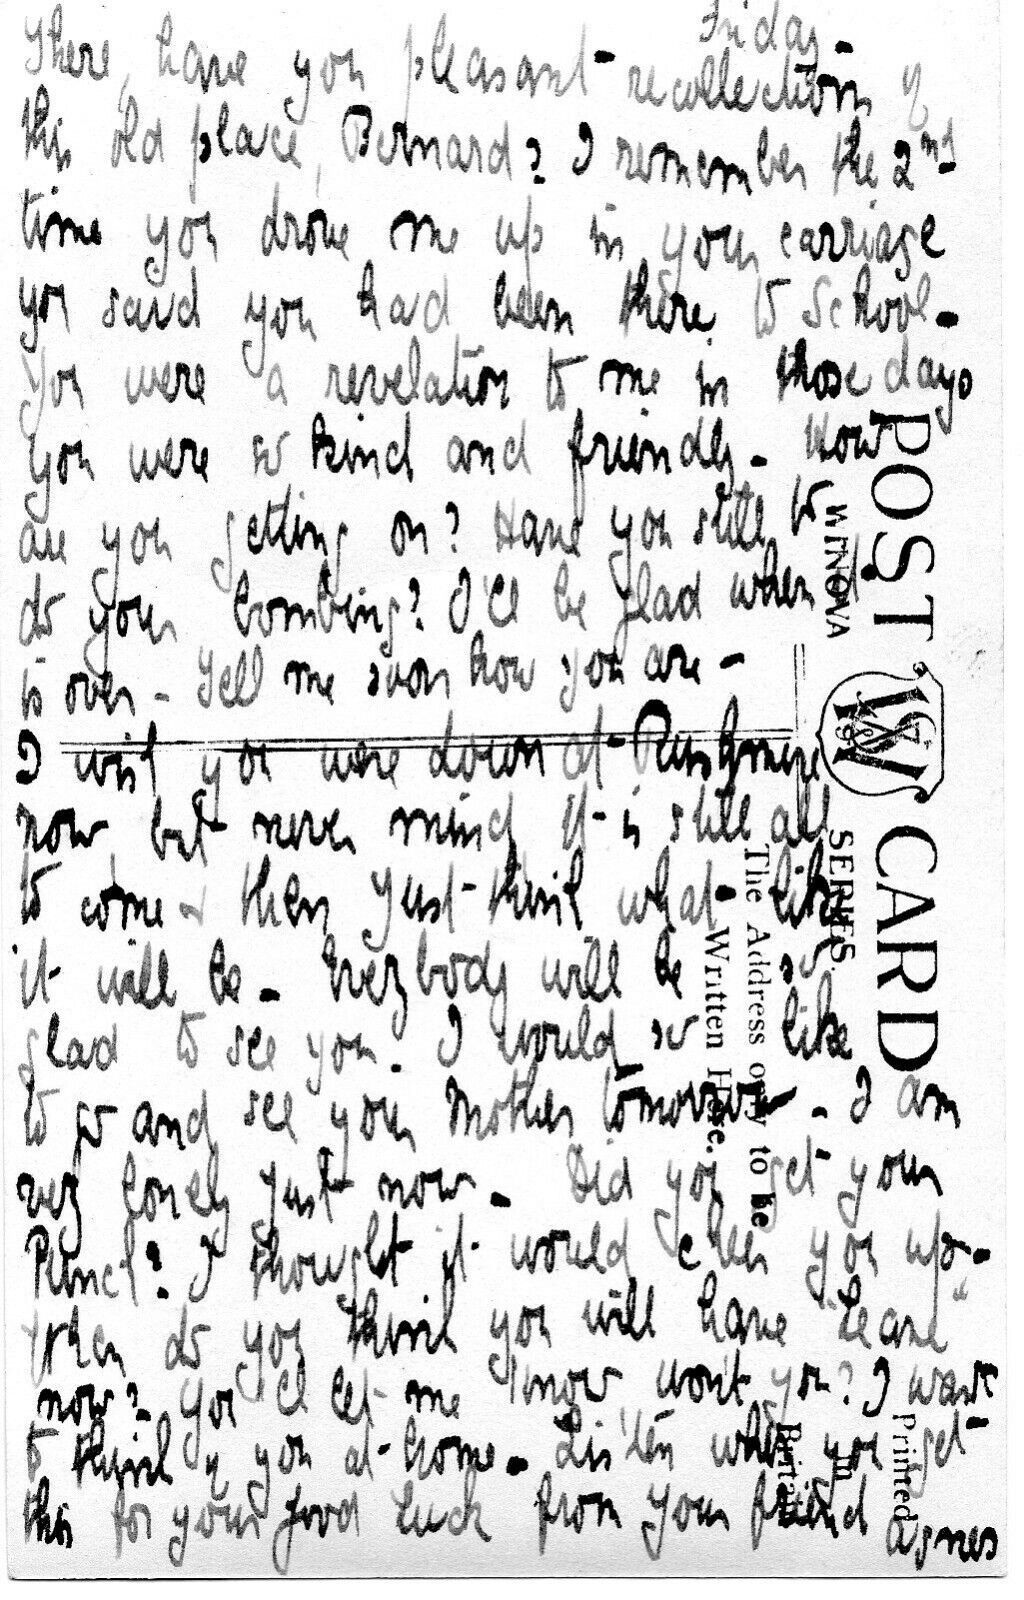 Friday -
There, have you pleasant recollections of
this old place, Bernard? I remember the 2nd
time you drove me up in your carriage
you said you had been there to School.
You were a revelation to me in those days
you were so kind and friendly - How
are you getting on? Have you still to
do your bombing? I'll be glad when it
is over - Tell me soon how you are -
I wish you were down at
now but never mind it is still all
to come & then Just think what like
it will be - Everybody will be so
glad to see you. I would so like
to go and see your Mother tomorrow - I am
very lonely just now - Did you get your
Punch? I thought it would cheer you up -
When do you think you will have "leave"
now? You'll let me know won't you? I want
to think of you at home. Listen when you get
this for your good luck from your friend Agnes
POST CARD
WINOVA
SERIES.
The Address only to be
Written Here.
Printed
in
Britain